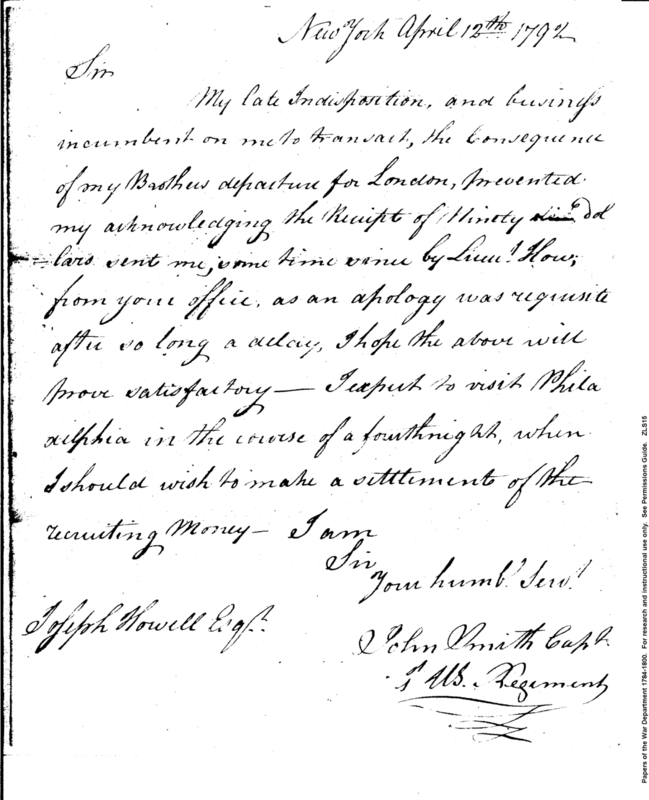 New York April 12th 1792
Sir
My late Indisposition, and business
incumbent on me to transact, the Consequence
of my Brothers departure for London, prevented
my acknowledging the Receipt of Ninety dol
lars sent me, some time since by Lieut. How,
from your office, as an apology was requisite
after so long a delay, I hope the above will
prove satisfactory — I expect to visit Phila
delphia in the course of a fourthnight, when
I should wish to make a settlement of the
recruiting Money — I am
Sir
Your humbl. Servt.
Joseph Howell Esqr.
John Smith Capt.
1t US. Regement
Papers of the War Department 1784-1800. For research and instructional use only. See Permissions Guide. ZLS15